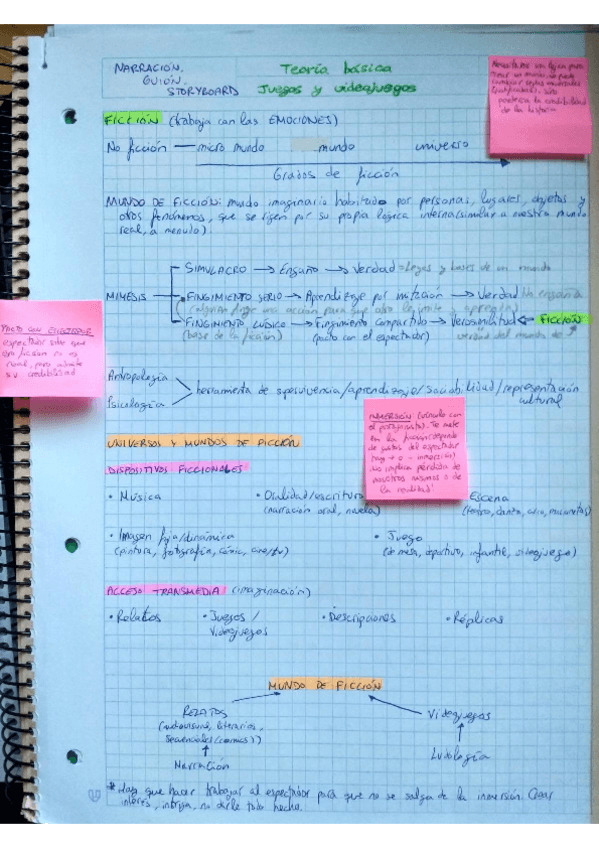 NARRACIÓN.
GUIÓN.
STORYBOARD
Teoría básica
Juegos y videojuegos
Necesitamos una lógica para
crear un mundo, no puedo
cambiar reglas
la credibilidad
de la historia
FICCIÓN (trabaja con las EMOCIONES)
No ficción — micro mundo mundo universo
Grados de ficción
MUNDO DE FICCIÓN: mundo imaginario habitado por personas, lugares, objetos y
otros fenómenos, que se rigen por su propia lógica interna (similar a nuestro mundo
real, a menudo).
MIMESIS
SIMULACRO → Engaño → Verdad = Leyes y bases de un mundo
• FINGIMIENTO SERIO → Aprendizaje por imitación → Verdad No engaña
(alguien finge una acción para que otro le imite y aprenda)
• FINGIMIENTO LÚDICO → Fingimiento compartido → Verosimilitud ← FICCIÓN
(base de la ficción) (pacto con el espectador) verdad del mundo de
PACTO CON ESPECTADOR
espectador sabe que
esa ficción no es
real, pero admite
su credibilidad
Antropología
Psicología
herramienta de supervivencia/aprendizaje/sociabilidad/representación
cultural
INMERSIÓN (vínculo con
el personaje). Te mete
en la (depende
de gustos del espectador
hay + o - inmersión)
No implica pérdida de
nosotros mismos o de
la realidad
UNIVERSOS Y MUNDOS DE FICCIÓN
DISPOSITIVOS FICCIONALES
• Música
• Oralidad/escritura
(narración oral, novela)
Escena
(teatro, danza, circo, marionetas)
• Imagen fija/dinámica
(pintura, fotografía, cómic, cine/tv)
• Juego
(de mesa, deportivo, infantil, videojuego)
ACCESO TRANSMEDIA (imaginación)
• Relatos
• Juegos/
Videojuegos
• Descripciones
• Réplicas
MUNDO DE FICCIÓN
RELATOS
(audiovisual, literarios,
secuenciales (cómics))
Narración
Videojuegos
Ludología
* Hay que hacer trabajar al espectador para que no se salga de la inmersión. Crear
interés, intriga, no darle todo hecho.